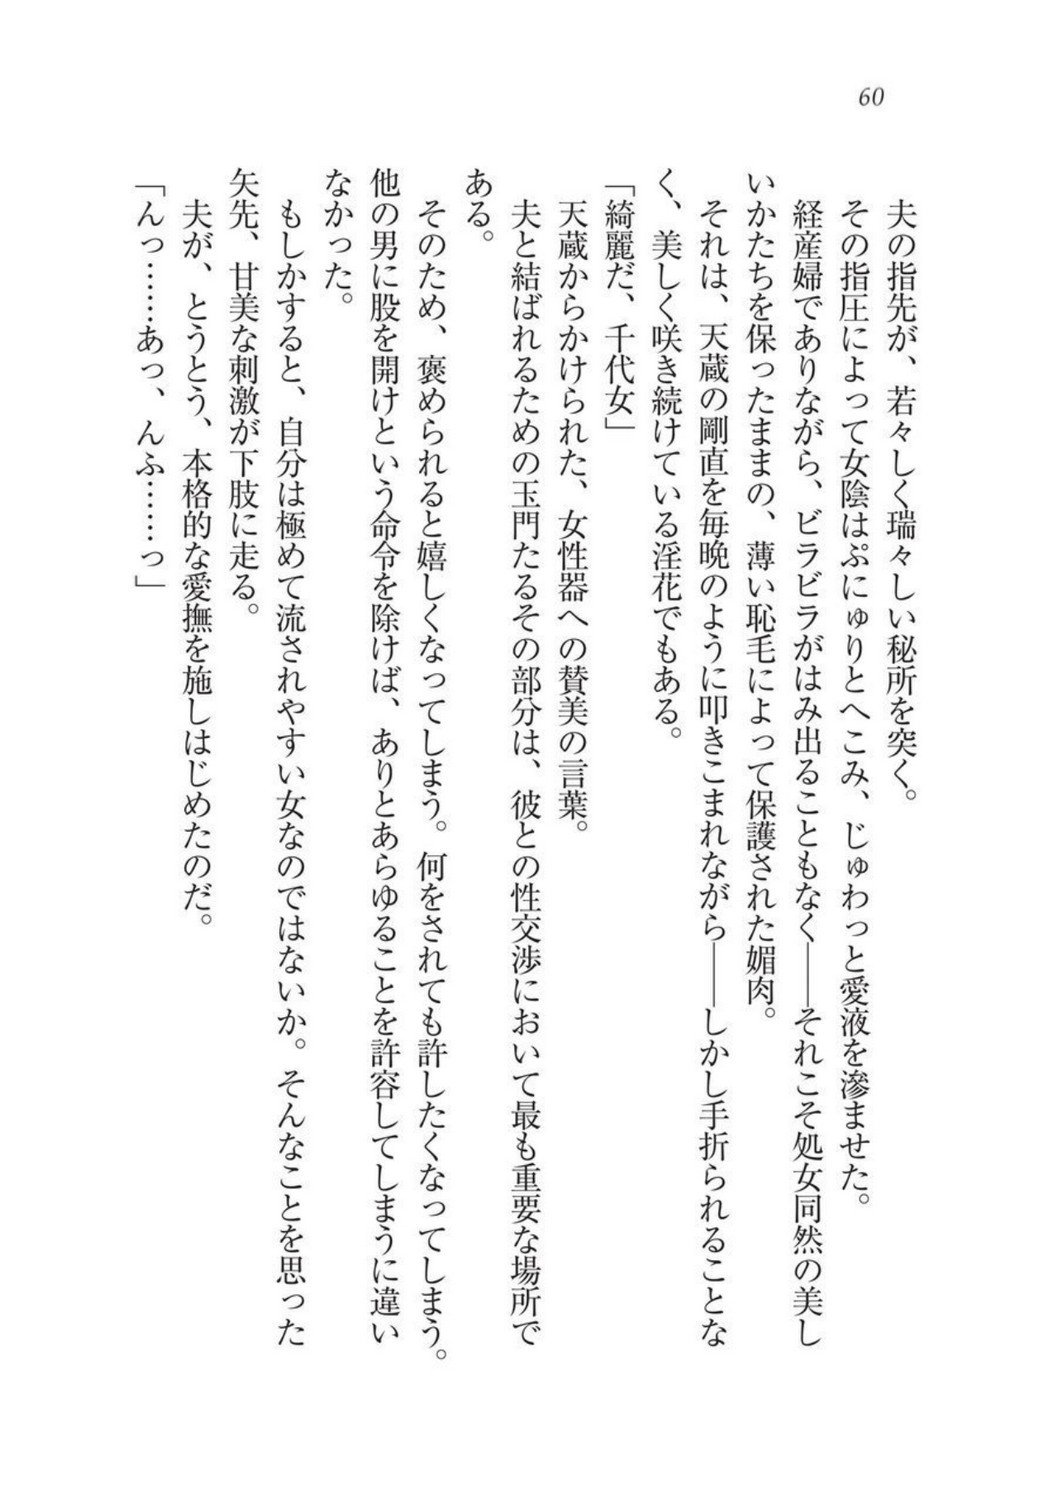 60
夫の指先が、若々しく瑞々しい秘所を突く。
その指圧によって女陰はぷにゅりとへこみ、じゅわっと愛液を滲ませた。
経産婦でありながら、ビラビラがはみ出ることもなく――それこそ処女同然の美し
いかたちを保ったままの、薄い恥毛によって保護された媚肉。
それは、天蔵の剛直を毎晩のように叩きこまれながら――しかし手折られることな
く、美しく咲き続けている淫花でもある。
「綺麗だ、千代女」
天蔵からかけられた、女性器への賛美の言葉。
夫と結ばれるための玉門たるその部分は、彼との性交渉において最も重要な場所で
ある。
そのため、褒められると嬉しくなってしまう。何をされても許したくなってしまう。
他の男に股を開けという命令を除けば、ありとあらゆることを許容してしまうに違い
なかった。
もしかすると、自分は極めて流されやすい女なのではないか。そんなことを思った
矢先、甘美な刺激が下肢に走る。
夫が、とうとう、本格的な愛撫を施しはじめたのだ。
「んっ……あっ、んふ……っ」